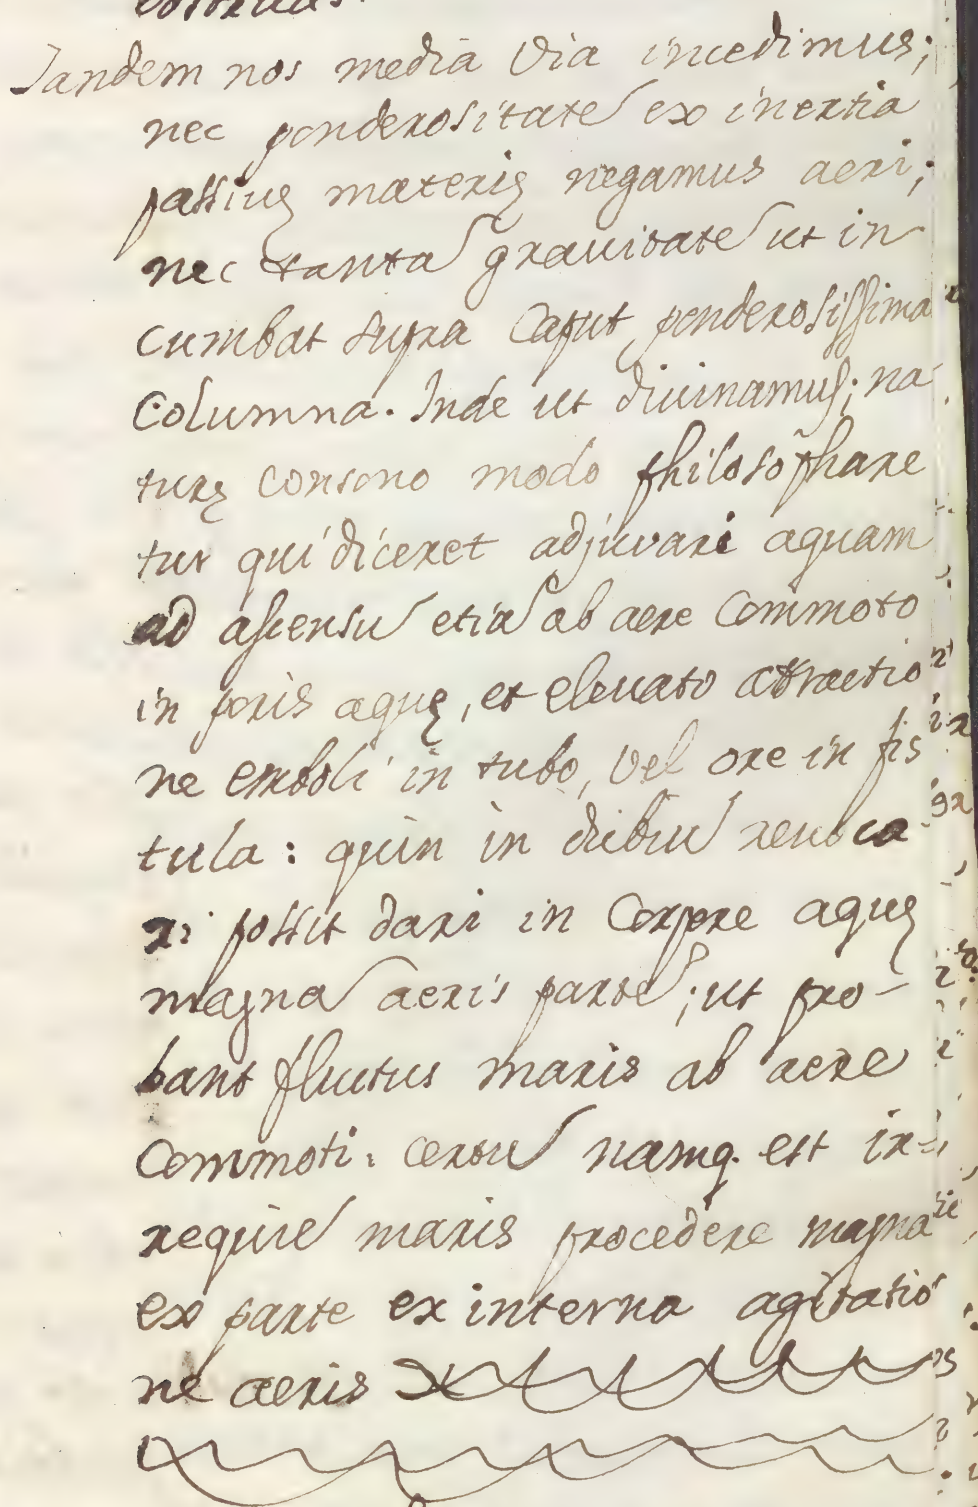 Tandem nos media via incedimus;
nec ponderositatē ex inertia
passiuę materię negamus aeri;
nec tantā grauitatē ut in
cumbat supra Caput ponderosissima
Columna. Inde ut diuinamus; na
turę consono modo philosophare
tur qui diceret adjuvari aquam
ad ascensū etiā ab aere Commoto
in poris aquę, et eleuato attractio
ne emboli in tubo, vel ore in fis
tula: quin in dubiū reuoca
ri possit dari in Corpore aquę
magnā aeris partē; ut pro-
bant fluctus maris ab aere
Commoti. certū namq. est ir-
requiē maris procedere magna
ex parte ex interna agitatio
ne aeris